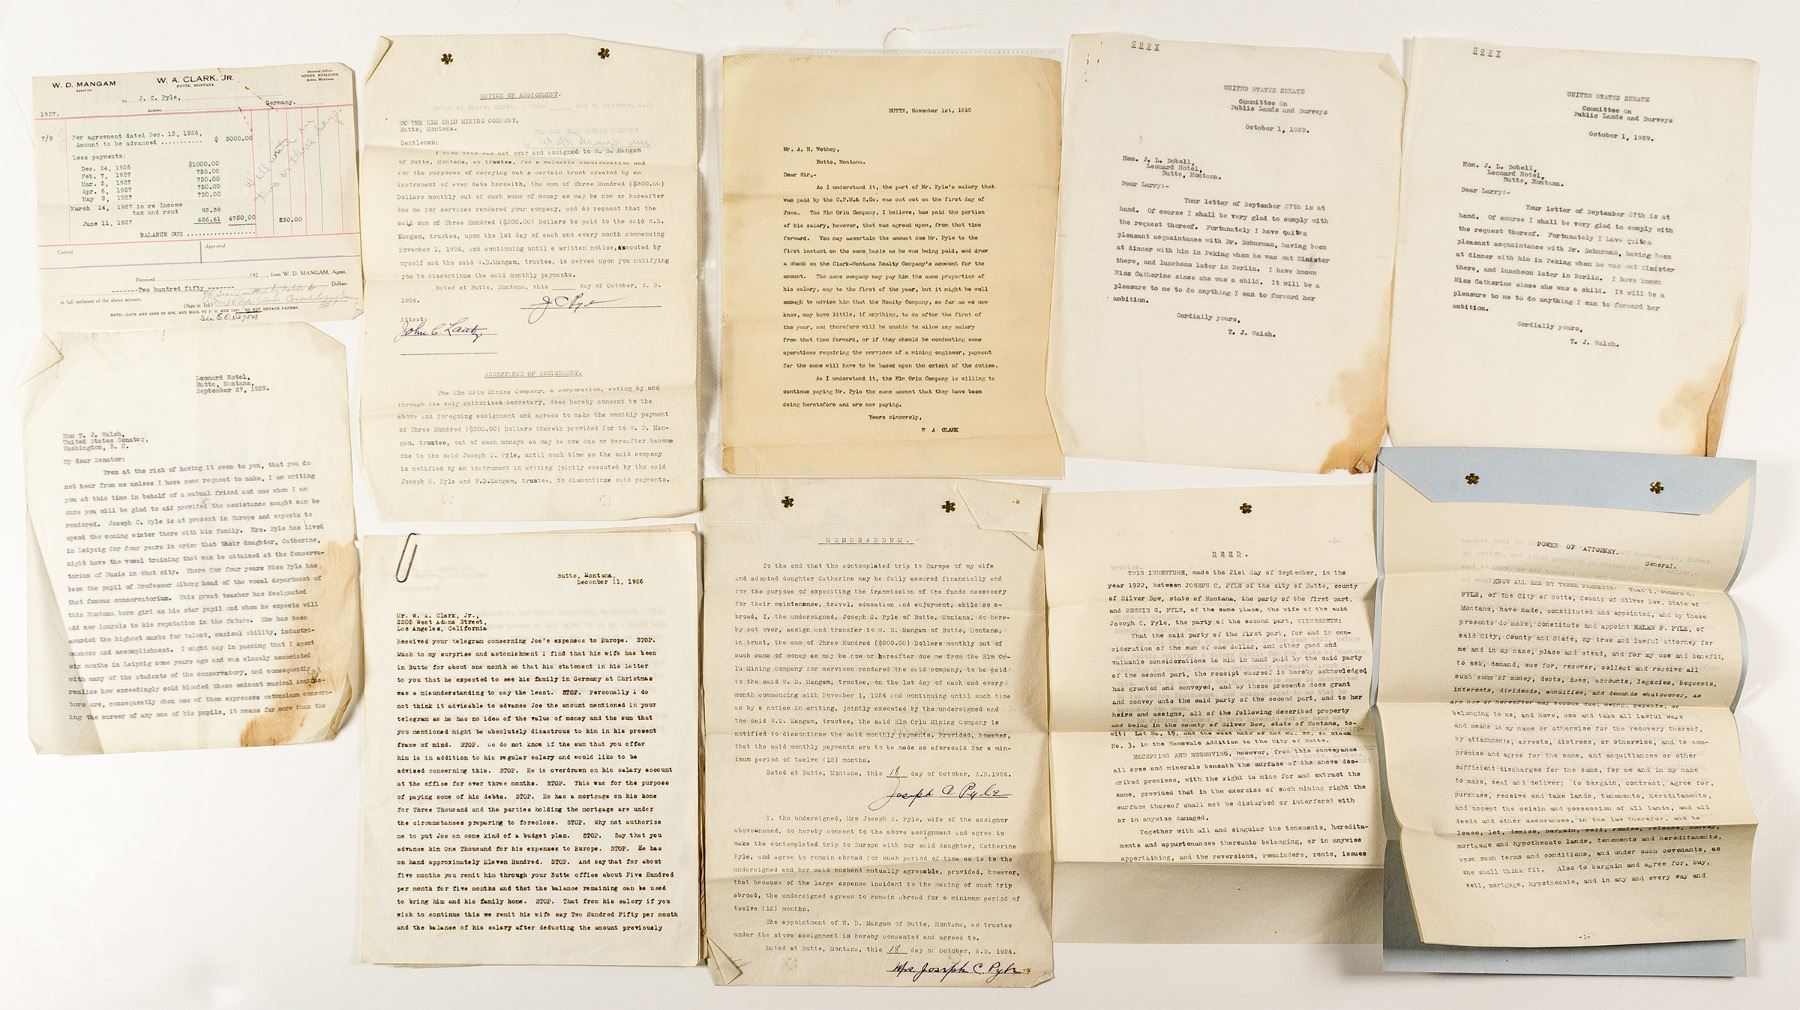 W. D. MANGAM
W. A. CLARK, JR.
BUTTE, MONTANA
J. C. Pyle,
Germany.
1927.
7/9 Per agreement dated Dec. 13, 1926,
Amount to be advanced $ 5000.00
Less payments:
Dec. 24, 1926 $1000.00
Feb. 7, 1927 750.00
Mar. 5, 1927 750.00
Apr. 6, 1927 750.00
May 3, 1927 750.00
March 14, 1927 in re Income
tax and rent 93.39
June 11, 1927 656.61 4750.00 250.00
BALANCE DUE
Correct
Approved
Received 192 from W. D. MANGAM, Agent.
Two hundred fifty Dollars
in full settlement of the above account.
(Sign in Ink)
Leonard Hotel,
Butte, Montana,
September 27, 1929.
Hon T. J. Walsh,
United States Senator,
Washington, D. C.
My dear Senator:
Even at the risk of having it seem to you, that you do
not hear from me unless I have some request to make, I am writing
you at this time in behalf of a mutual friend and one whom I am
sure you will be glad to aid provided the assistance sought can be
rendered. Joseph C. Pyle is at present in Europe and expects to
spend the coming winter there with his family. Mrs. Pyle has lived
in Leipzig for four years in order that their daughter, Catherine,
might have the vocal training that can be obtained at the Conserva-
torium of Music in that city. There for four years Miss Pyle has
been the pupil of Professor Alberg head of the vocal department of
that famous conservatorium. This great teacher has designated
this Montana born girl as his star pupil and whom he expects will
add new laurels to his reputation in the future. She has been
awarded the highest marks for talent, musical ability, industri-
ousness and accomplishment. I might say in passing that I spent
six months in Leipzig some years ago and was closely associated
with many of the students of the conservatory, and consequently
realize how exceedingly cold blooded these eminent musical
bors are, consequently when one of them expresses enthusiasm concern-
ing the career of any one of his pupils, it means far more than the
NOTICE OF ASSIGNMENT.
TO THE ELM ORLU MINING COMPANY,
Butte, Montana.
Gentlemen:
I have this day set over and assigned to W. D. Mangam
of Butte, Montana, as trustee, for a valuable consideration and
for the purposes of carrying out a certain trust created by an
instrument of even date herewith, the sum of Three Hundred ($300.00)
Dollars monthly out of such sums of money as may be now or hereafter
due me for services rendered your company, and do request that the
said sum of Three Hundred ($300.00) Dollars be paid to the said W.D.
Mangam, trustee, upon the 1st day of each and every month commencing
November 1, 1924, and continuing until a written notice, executed by
myself and the said W.D.Mangam, trustee, is served upon you notifying
you to discontinue the said monthly payments.
Dated at Butte, Montana, this ____ day of October, A. D.
1924.
J C Pyle
Attest:
John C Lantz
ACCEPTANCE OF ASSIGNMENT.
The Elm Orlu Mining Company, a corporation, acting by and
through its duly authorized Secretary, does hereby consent to the
above and foregoing assignment and agrees to make the monthly payment
of Three Hundred ($300.00) Dollars therein provided for to W. D. Man-
gam, trustee, out of such moneys as may be now due or hereafter become
due to the said Joseph C. Pyle, until such time as the said company
is notified by an instrument in writing jointly executed by the said
Joseph C. Pyle and W.D.Mangam, trustee, to discontinue said payments.
Butte, Montana,
December 11, 1926
Mr. W. A. Clark, Jr.,
2205 West Adams Street,
Los Angeles, California
Received your telegram concerning Joe's expenses to Europe. STOP.
Much to my surprise and astonishment I find that his wife has been
in Butte for about one month so that his statement in his letter
to you that he expected to see his family in Germany at Christmas
was a misunderstanding to say the least. STOP. Personally I do
not think it advisable to advance Joe the amount mentioned in your
telegram as he has no idea of the value of money and the sum that
you mentioned might be absolutely disastrous to him in his present
frame of mind. STOP. We do not know if the sum that you offer
him is in addition to his regular salary and would like to be
advised concerning this. STOP. He is overdrawn on his salary account
at the office for over three months. STOP. This was for the purpose
of paying some of his debts. STOP. He has a mortgage on his home
for Three Thousand and the parties holding the mortgage are under
the circumstances preparing to foreclose. STOP. Why not authorize
me to put Joe on some kind of a budget plan. STOP. Say that you
advance him One Thousand for his expenses to Europe. STOP. He has
on hand approximately Eleven Hundred. STOP. And say that for about
five months you remit him through your Butte office about Five Hundred
per month for five months and that the balance remaining can be used
to bring him and his family home. STOP. That from his salary if you
wish to continue this we remit his wife say Two Hundred Fifty per month
and the balance of his salary after deducting the amount previously
BUTTE, November 1st, 1910
Mr. A. H. Wethey,
Butte, Montana.
Dear Sir,-
As I understand it, the part of Mr. Pyle's salary that
was paid by the C.P.M.& S.Co. was cut out on the first day of
June. The Elm Orlu Company, I believe, has paid the portion
of his salary, however, that was agreed upon, from that time
forward. You may ascertain the amount due Mr. Pyle to the
first instant on the same basis as he was being paid, and draw
a check on the Clark-Montana Realty Company's account for the
amount. The same company may pay him the same proportion of
his salary, say to the first of the year, but it might be well
enough to advise him that the Realty Company, so far as we now
know, may have little, if anything, to do after the first of
the year, and therefore will be unable to allow any salary
from that time forward, or if they should be conducting some
operations requiring the services of a mining engineer, payment
for the same will have to be based upon the extent of the duties.
As I understand it, the Elm Orlu Company is willing to
continue paying Mr. Pyle the same amount that they have been
doing heretofore and are now paying.
Yours sincerely,
W A CLARK
MEMORANDUM.
To the end that the contemplated trip to Europe of my wife
and adopted daughter Catherine may be fully assured financially and
for the purpose of expediting the transmission of the funds necessary
for their maintenance, travel, education and enjoyment, while so a-
broad, I, the undersigned, Joseph C. Pyle of Butte, Montana, do here-
by set over, assign and transfer to W. D. Mangam of Butte, Montana,
in trust, the sum of Three Hundred ($300.00) Dollars monthly out of
such sums of money as may be now or hereafter due me from the Elm Or-
lu Mining Company for services rendered the said company, to be paid
to the said W.D. Mangam, trustee, on the 1st day of each and every
month commencing with November 1, 1924 and continuing until such time
as by a notice in writing, jointly executed by the undersigned and
the said W.D. Mangam, trustee, the said Elm Orlu Mining Company is
notified to discontinue the said monthly payments. Provided, however,
that the said monthly payments are to be made as aforesaid for a min-
imum period of twelve (12) months.
Dated at Butte, Montana, this 18 day of October, A.D.1924.
Joseph C Pyle
I, the undersigned, Mrs Joseph C. Pyle, wife of the assignor
abovenamed, do hereby consent to the above assignment and agree to
make the contemplated trip to Europe with our said daughter, Catherine
Pyle, and agree to remain abroad for such period of time as is to the
undersigned and her said husband mutually agreeable, provided, however,
that because of the large expense incident to the making of such trip
abroad, the undersigned agrees to remain abroad for a minimum period of
twelve (12) months.
The appointment of W. D. Mangam of Butte, Montana, as trustee
under the above assignment is hereby consented and agreed to.
Dated at Butte, Montana, this 18 day of October, A.D. 1924.
Mrs Joseph C. Pyle
COPY
UNITED STATES SENATE
Committee On
Public Lands and Surveys
October 1, 1929.
Hon. J. L. Dobell,
Leonard Hotel,
Butte, Montana.
Dear Larry:-
Your letter of September 27th is at
hand. Of course I shall be very glad to comply with
the request thereof. Fortunately I have quite a
pleasant acquaintance with Dr. Schurman, having been
at dinner with him in Peking when he was out Minister
there, and luncheon later in Berlin. I have known
Miss Catherine since she was a child. It will be a
pleasure to me to do anything I can to forward her
ambition.
Cordially yours,
T. J. Walsh.
COPY
UNITED STATES SENATE
Committee On
Public Lands and Surveys
October 1, 1929.
Hon. J. L. Dobell,
Leonard Hotel,
Butte, Montana.
Dear Larry:-
Your letter of September 27th is at
hand. Of course I shall be very glad to comply with
the request thereof. Fortunately I have quite a
pleasant acquaintance with Dr. Schurman, having been
at dinner with him in Peking when he was out Minister
there, and luncheon later in Berlin. I have known
Miss Catherine since she was a child. It will be a
pleasure to me to do anything I can to forward her
ambition.
Cordially yours,
T. J. Walsh.
DEED.
THIS INDENTURE, made the 21st day of September, in the
year 1922, between JOSEPH C. PYLE of the city of Butte, county
of Silver Bow, state of Montana, the party of the first part,
and BESSIE G. PYLE, of the same place, the wife of the said
Joseph C. Pyle, the party of the second part, WITNESSETH:
That the said party of the first part, for and in con-
sideration of the sum of one dollar, and other good and
valuable considerations to him in hand paid by the said party
of the second part, the receipt whereof is hereby acknowledged
has granted and conveyed, and by these presents does grant
and convey unto the said party of the second part, and to her
heirs and assigns, all of the following described property
and being in the county of Silver Bow, state of Montana, to-
wit: Lot No. 19, and the West half of Lot No. 20, in Block
No. 3, in the Addition to the City of Butte.
EXCEPTING AND RESERVING, however, from this conveyance
all ores and minerals beneath the surface of the above des-
cribed premises, with the right to mine for and extract the
same, provided that in the exercise of such mining right the
surface thereof shall not be disturbed or interfered with
or in anywise damaged.
Together with all and singular the tenements, heredita-
ments and appurtenances thereunto belonging, or in anywise
appertaining, and the reversions, remainders, rents, issues
POWER OF ATTORNEY.
General.
KNOW ALL MEN BY THESE PRESENTS: That I,
PYLE, of the City of Butte, County of Silver Bow, State of
Montana, have made, constituted and appointed, and by these
presents do make, constitute and appoint HELEN F. PYLE, of
said City, County and State, my true and lawful attorney for
me and in my name, place and stead, and for my use and benefit,
to ask, demand, sue for, recover, collect and receive all
such sums of money, debts, dues, accounts, legacies, bequests,
interests, dividends, annuities, and demands whatsoever, as
are now or hereafter may become due, owing, payable, or
belonging to me; and have, use and take all lawful ways
and means in my name or otherwise for the recovery thereof,
by attachments, arrests, distress, or otherwise, and to com-
promise and agree for the same, and acquittances or other
sufficient discharges for the same, for me and in my name
to make, seal and deliver; to bargain, contract, agree for,
purchase, receive and take lands, tenements, hereditaments,
and accept the seisin and possession of all lands, and all
deeds and other assurances, in the law therefor, and to
lease, let, demise, bargain, sell, remise, release, convey,
mortgage and hypothecate lands, tenements and hereditaments,
upon such terms and conditions, and under such covenants, as
she shall think fit. Also to bargain and agree for, buy,
sell, mortgage, hypothecate, and in any and every way and
-1-